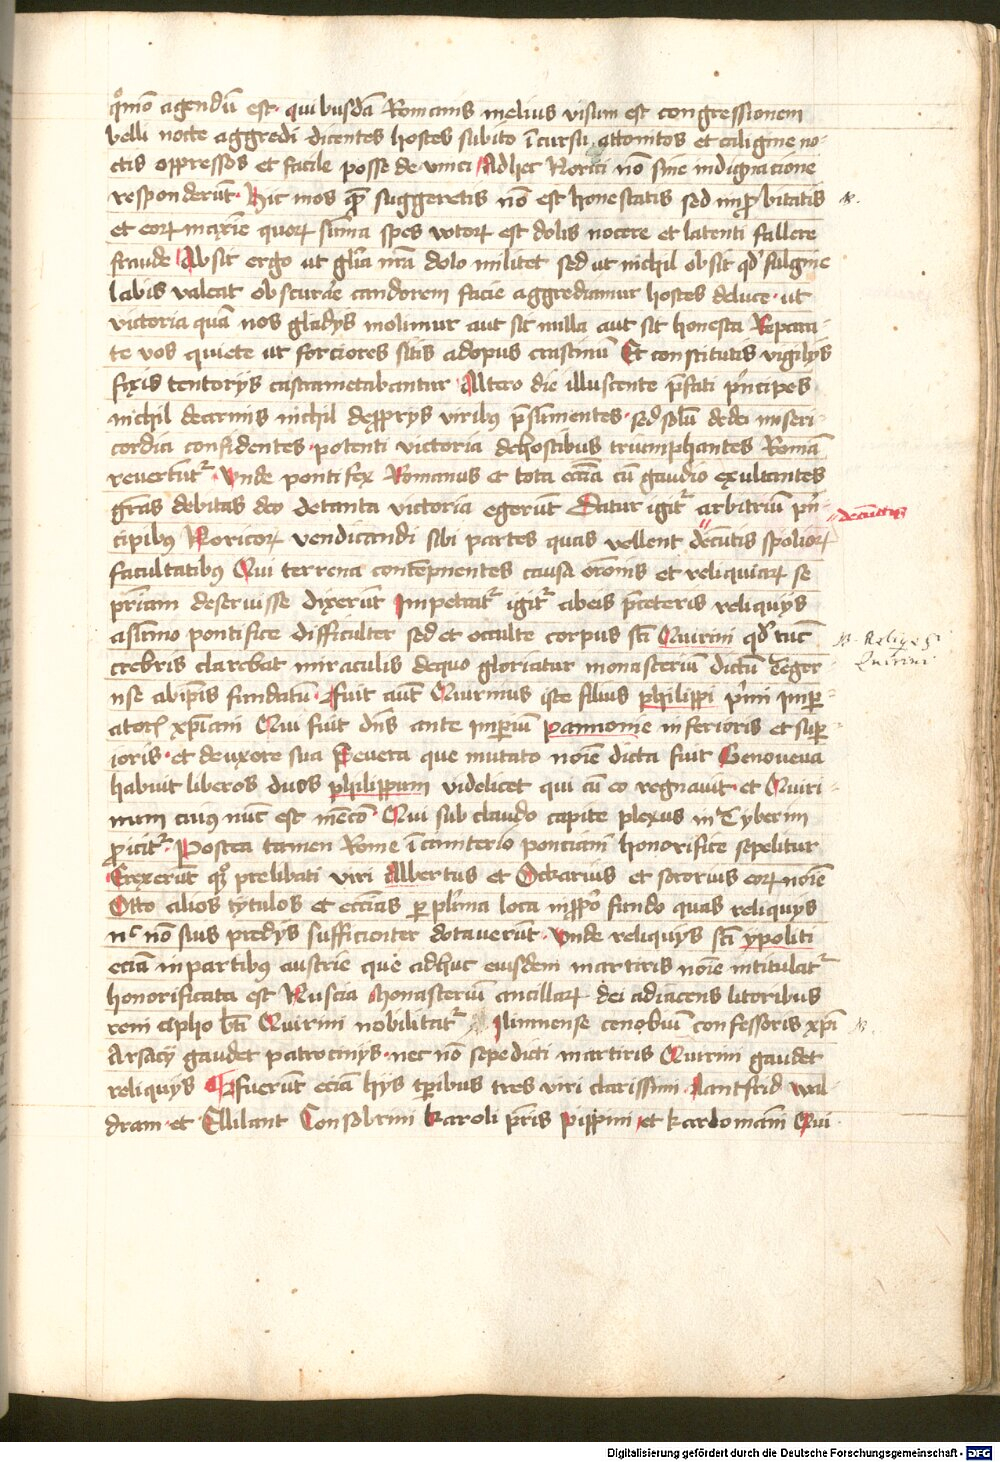 qͦmo agendū est · quibusdā Romanis melius visum est congressionem
belli nocte aggredi dicentes hostes subito īcursu attonitos et caligine no-
ctis oppressos et facile posse deuinci Ad hec Norici nō sine indignacione
responderūt · Hic mos quē suggeretis nō est honestatis sed improbitatis
et eoꝝ maxīe quoꝝ sūma spes votoꝝ est dolis nocere et latenti fallere
fraude Absit ergo ut gl̄ia nr̄a dolo militet sed ut nichil obsit qd' fulgine
labis valeat obscurare candorem facie aggrediamur hostes de luce · ut
victoria quā nos gladijs molimur aut sit nulla aut sit honesta Repara-
te vos quiete ut forciores sitis ad opus crastinū Et constitutis vigilijs
fixis tentorijs castrametabantur Altero die illuscente p̄fati p̄ncipes
nichil de armis nichil de prijs viribꝰ p̄sumentes · sed solū de dei miseri-
cordia confidentes · potenti victoria de hostibus triumphantes Romā
reuertūtr · Vnde pontifex Romanus et tota ecc̄ia cū gaudio exultantes
gr̄as debitas deo de tanta victoria egerūt Datur igitr arbitriū p̄n-
cipibꝰ Noricoꝝ vendicandi sibi partes quas vellent de cūctis spolioꝝ
de cūctis
facultatibꝰ Qui terrena contēpnentes causa orōnis et reliquiaꝝ se
pr̄iam deseruisse dixerūt Impetratr igitr ab eis p̄ ceteris reliquijs
a sūmo pontifice difficulter sed et occulte corpus sc̄i Quirini qd' tūc
Reliqe s
Quirini
crebris clarebat miraculis de quo gloriatur monasteriū dictū Teger-
nse ab ip̄is fundatū · Fuit aūt Quirinus iste filius philippi p̄mi imper-
atoris xp̄iani Qui fuit dn̄s ante imperiū pannonie inferioris et super
ioris · et de uxore sua Seuera que mutato noīe dicta fuit Genoueua
habuit liberos duos philippum videlicet qui cū eo regnauit · et Quiri-
num cuiꝰ nūc est mēcō Qui sub claudo capite plexus in Tyberim
proicitr · Postea tamen Rome ī cimiterio ponciani honorifice sepelitur
Erexerūt quoqꝫ prelibati viri Albertus et Ockarius et sororius eoꝝ noīe
Otto alios tytulos et ecc̄ias per pl'ima loca in proprio fundo quas reliquijs
nc nō suis predijs sufficienter dotauerūt · Vnde reliquijs sc̄i ypoliti
eciā in partibꝰ austrie que adhuc eiusdem martiris noīe intitulatr
honorificata est Ruscia Monasteriū ancillaꝝ dei adiacens litoribus
reni cipho bt̄i Quirini nobilitatr Ilimnense cenobiū confessoris xp̄i
Arsacij gaudet patrocinijs · nec nō sepedicti martiris Quirini gaudet
reliquijs Fuerūt eciā hijs tp̄ibus tres viri clarissimi · Lantfrid wal-
dram · et Ellilant Consobrini karoli pr̄is pippini · et kardomāni Qui ·